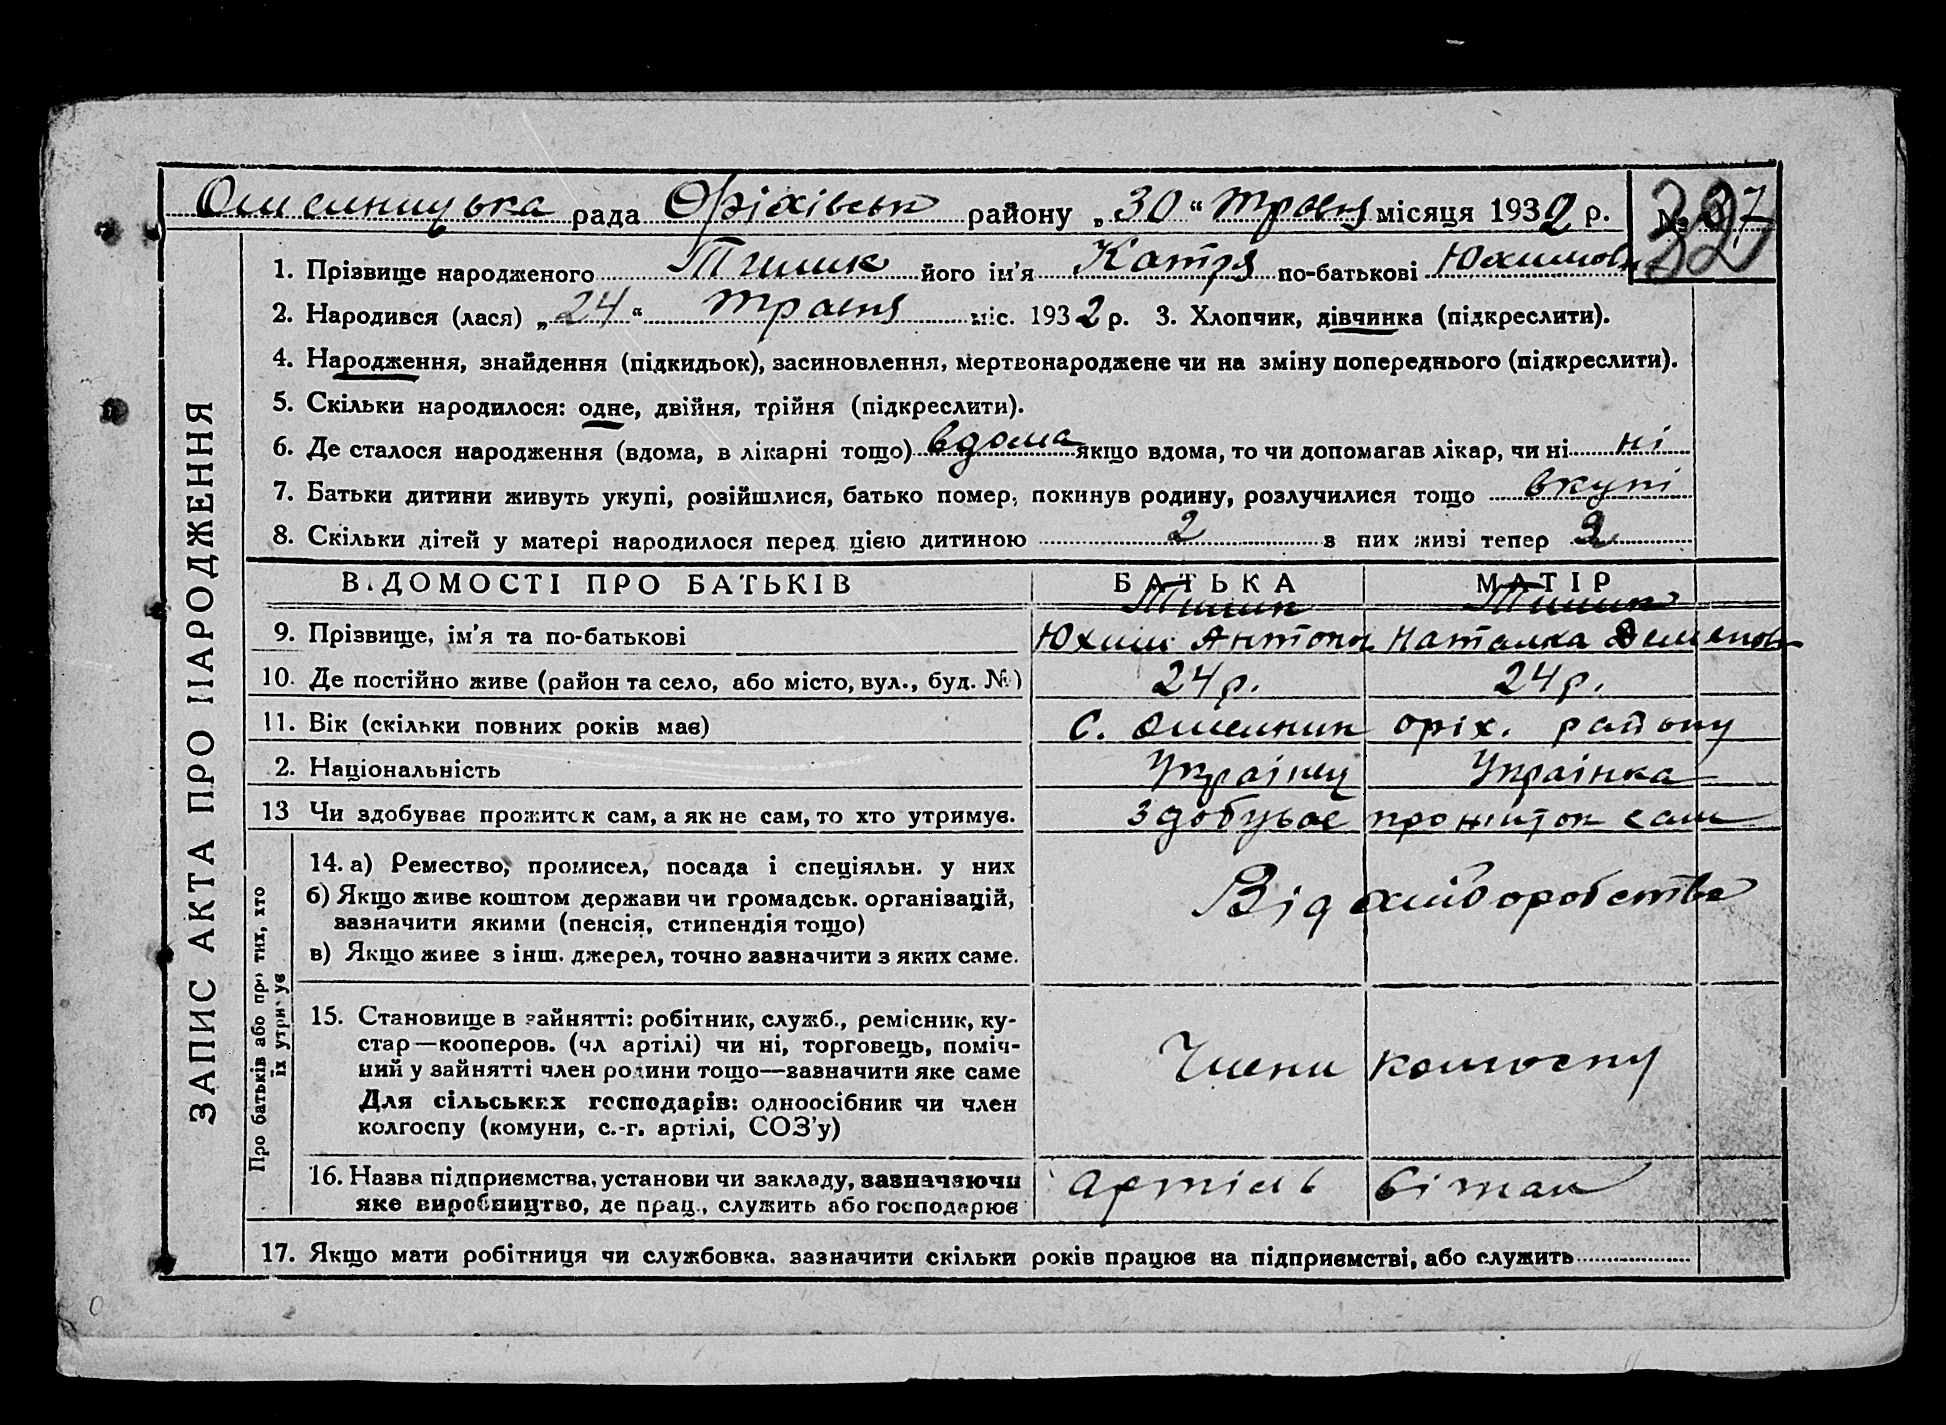 Омелницька рада Оріхівськ району „30“ травня місяця 1932 р. № 37
327
1. Прізвище народженого Тимик його ім’я Катря по-батькові Юхимовн
2. Народився (лася) „24“ травня міс. 1932 р. 3. Хлопчик, дівчинка (підкреслити).
4. Народження, знайдення (підкидьок), засиновлення, мертвонароджене чи на зміну попереднього (підкреслити).
5. Скільки народилося: одне, двійня, трійня (підкреслити).
6. Де сталося народження (вдома, в лікарні тощо) вдома якщо вдома, то чи допомагав лікар, чи ні ні
7. Батьки дитини живуть укупі, розійшлися, батько помер, покинув родину, розлучилися тощо вкупі
8. Скільки дітей у матері народилося перед цією дитиною 2 з них живі тепер 2
ЗАПИС АКТА ПРО НАРОДЖЕННЯ
ВІДОМОСТІ ПРО БАТЬКІВ БАТЬКА МАТІР
9. Прізвище, ім’я та по-батькові Тимик Юхим Антонов Тимик Наталка Семенов
10. Де постійно живе (район та село, або місто, вул., буд. №) 24 р. 24 р.
11. Вік (скільки повних років має) с. Омелник оріх. району
2. Національність Українец Українка
13 Чи здобуває прожиток сам, а як не сам, то хто утримує. Здобуває прожиток сам
Про батьків або про тих, хто
їх утримує
14. а) Ремество, промисел, посада і спеціяльн. у них
б) Якщо живе коштом держави чи громадськ. організацій,
зазначити якими (пенсія, стипендія тощо)
в) Якщо живе з інш. джерел, точно зазначити з яких саме.
Від хліборобства
15. Становище в зайнятті: робітник, служб., ремісник, ку-
стар—кооперов. (чл артілі) чи ні, торговець, поміч-
ний у зайнятті член родини тощо—зазначити яке саме
Для сільських господарів: одноосібник чи член
колгоспу (комуни, с.-г. артілі, СОЗ’у)
Члени колгоспу
16. Назва підприємства, установи чи закладу, зазначаючи
яке виробництво, де прац., служить або господарює
Артіль
17. Якщо мати робітниця чи службовка. зазначити скільки років працює на підприємстві, або служить